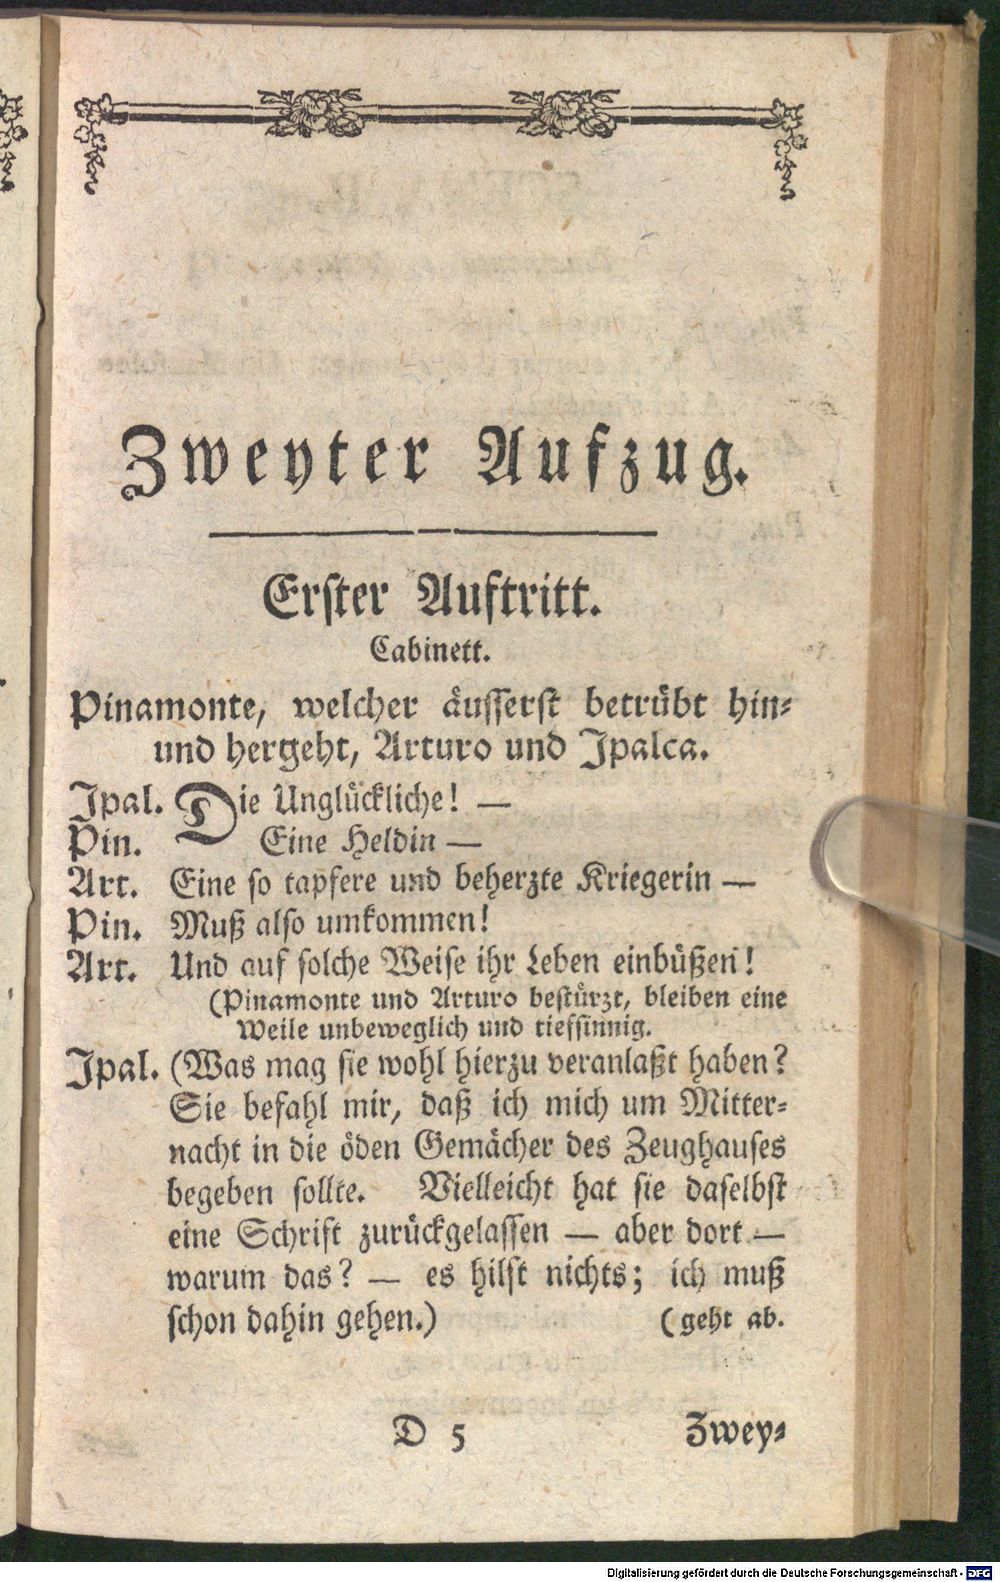 Zweyter Aufzug.
Erster Auftritt.
Cabinett.
Pinamonte, welcher äusserst betrübt hin-
und hergeht, Arturo und Ipalca.
Ipal. Die Unglückliche! —
Pin. Eine Heldin —
Art. Eine so tapfere und beherzte Kriegerin —
Pin. Muß also umkommen!
Art. Und auf solche Weise ihr Leben einbüßen!
(Pinamonte und Arturo bestürzt, bleiben eine
Weile unbeweglich und tiefsinnig.
Ipal. (Was mag sie wohl hierzu veranlaßt haben?
Sie befahl mir, daß ich mich um Mitter-
nacht in die öden Gemächer des Zeughauses
begeben sollte. Vielleicht hat sie daselbst
eine Schrift zurückgelassen — aber dort —
warum das? — es hilft nichts; ich muß
schon dahin gehen.) (geht ab.
D 5 Zwey-
Digitalisierung gefördert durch die Deutsche Forschungsgemeinschaft - DFG